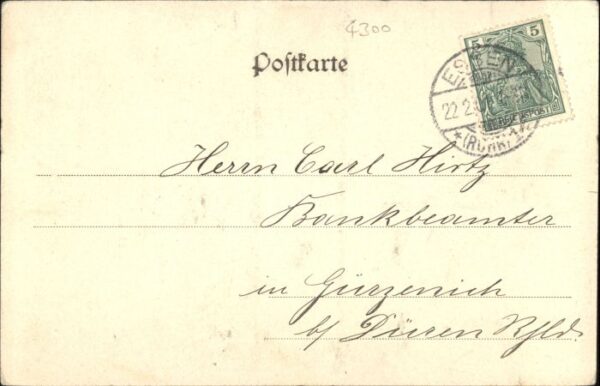 4300
Postkarte
5 5
ESSEN
22.2
*(RUHR)
Herrn Carl Hirtz
Bankbeamter
in Gürzenich
b/ Düren Rhld.